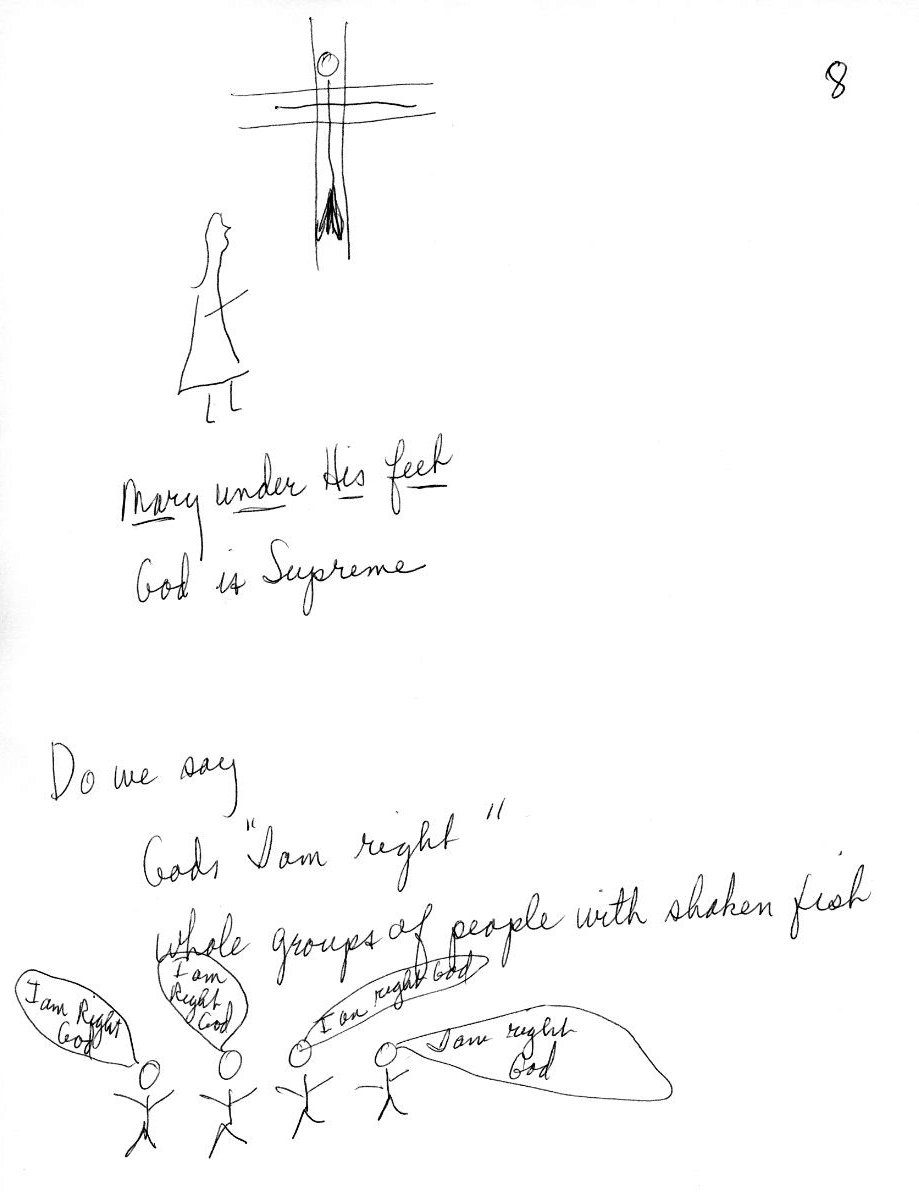 8
Mary under His feet
God is Supreme
Do we say
Gods "I am right"
whole groups of people with shaken fish
I am Right
God
I am
Right
God
I am right God
I am right
God